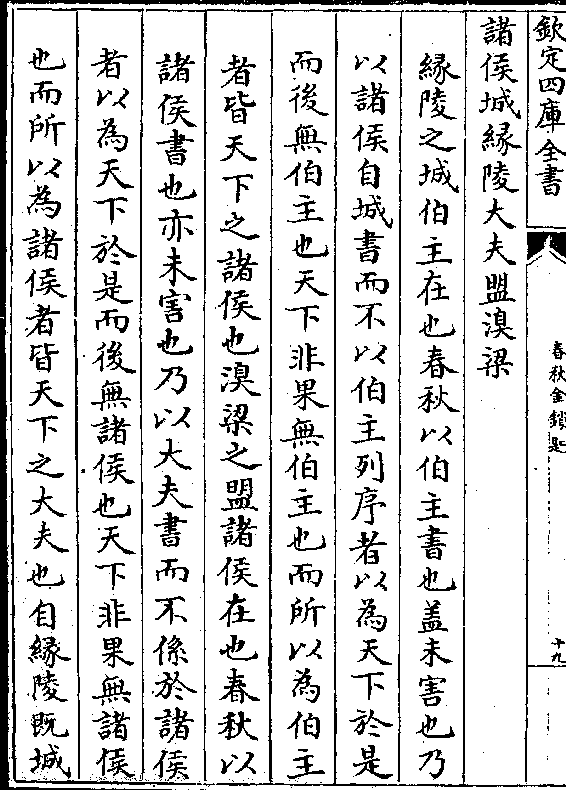 欽定四庫全書
春秋金鎖匙
十九
諸侯城縁陵大夫盟溴梁
縁陵之城伯主在也春秋以伯主書也盖未害也乃
以諸侯自城書而不以伯主列序者以為天下於是
而後無伯主也天下非果無伯主也而所以為伯主
者皆天下之諸侯也溴梁之盟諸侯在也春秋以
諸侯書也亦未害也乃以大夫書而不係於諸侯
者以為天下於是而後無諸侯也天下非果無諸侯
也而所以為諸侯者皆天下之大夫也自縁陵既城